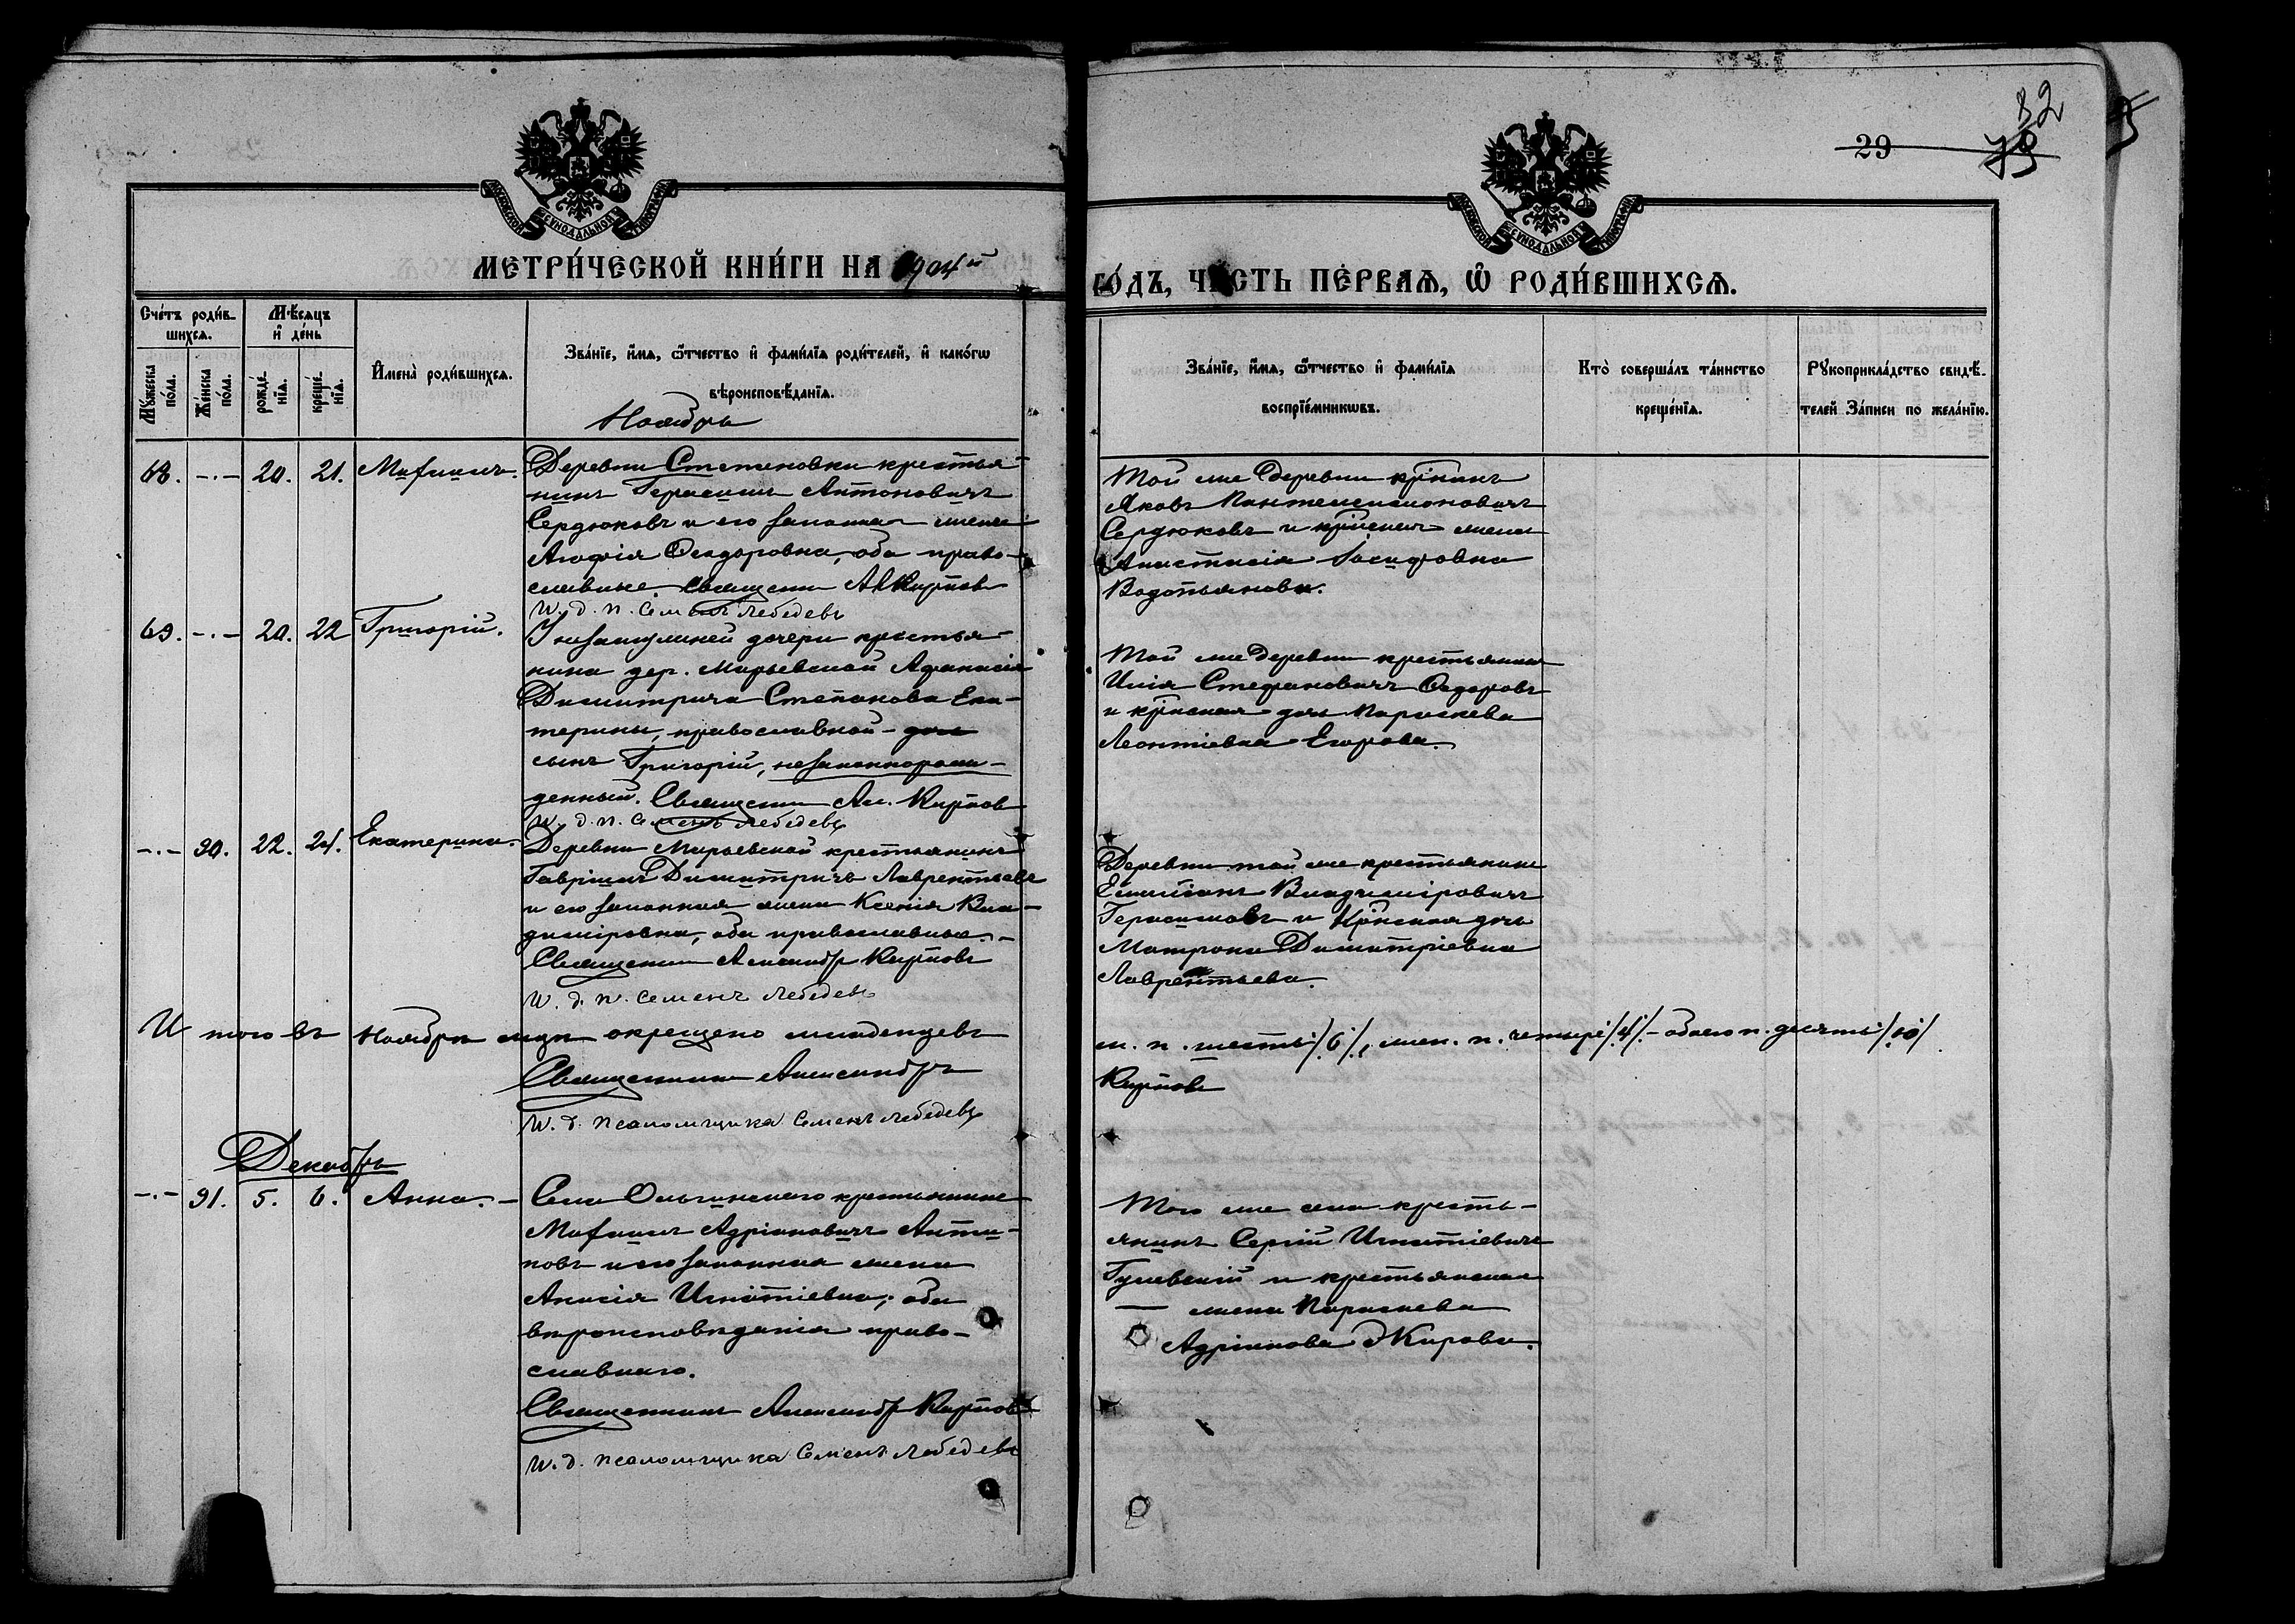 29 79
82
МЕТРИ́ЧЕСКОЙ КНИ́ГИ НА 1904й
ГО́ДЪ, ЧАСТЬ ПЕ́РВАЯ, Ѽ РОДИ́ВШИХСЯ.
Сче́тъ роди́в-
шихся.
Мꙋжеска по́ла.
Же́нска по́ла.
Мѣ́сяцъ и҆ де́нь
рожде́-нїя.
креще́-нїя.
И҆мена̀ роди́вшихся.
Зва́нїе, и҆́мя, ѻ҆́тчество и҆ фами́лїя роди́телей, и҆ како́гѡ
вѣроисповѣ́данїя.
Зва́нїе, и҆́мя, ѻ҆́тчество и҆ фами́лїя
воспрїе́мникѡвъ.
Кто̀ соверша́лъ та́инство
креще́нїя.
Рꙋкоприкла́дство свидѣ́-
телей За́писи по жела́нїю.
Ноябрь
68. -.- 20. 21. Михаилъ. Деревни Степановки крестья-
нинъ Герасимъ Антоновичъ
Сердюковъ и его законная жена
Агафія Ѳеодоровна, оба право-
славные. Священн. Ал. Карпов
И. д. п. Семенъ Лебедевъ
Той же деревни кр-нинъ
Яковъ Пантелеимоновичъ
Сердюковъ и жена
Анастасія Іосифовна
Водопьянова.
69. -.- 20. 22 Григорій. У незамужней дочери крестья-
нина дер. Марьевской Афанасія
Димитрича Степанова Ека-
терины, православной - дочь
сынъ Григорій, незаконнорож-
денный. Священн. Ал. Карпов
И. д. п. Семенъ Лебедевъ
Той же деревни крестьянинъ
Илія Стефановичъ Ѳедоровъ
и дочь Параскева
Леонтіевна Егорова.
-.- 30. 22. 24. Екатерина. Деревни Марьевской крестьянинъ
Гавріилъ Димитричъ Лаврентьевъ
и его законная жена Ксенія Вла-
диміровна, оба православные. -
Священник Александръ Карповъ
И. д. п. Семенъ Лебедевъ
Деревни той же крестьянинъ
Емиліанъ Владиміровичъ
Герасимовъ и дочь
Матрона Димитріевна
Лаврентьева.
И того въ Ноябрѣ м-цѣ окрещено младенцевъ
м. п. шесть /6/, жен. п. четыре /4/ - обоего п. десять /10/.
Священникъ Александръ
Карповъ
И. д. псаломщика Семенъ Лебедевъ
Декабрь
-.- 31. 5. 6. Анна. - Села Ольгинскаго крестьянинъ
Михаилъ Адріановичъ Анти-
повъ и его законная жена
Анисія Игнатіевна; оба
вѣроисповѣданія право-
славнаго.
Священникъ Александръ Карповъ
И. д. псаломщика Семенъ Лебедевъ
Того же села кресть-
янинъ Сергій Игнатіевичъ
Гулевскій и крестьянская
жена Параскева
Адріанова Жирова.